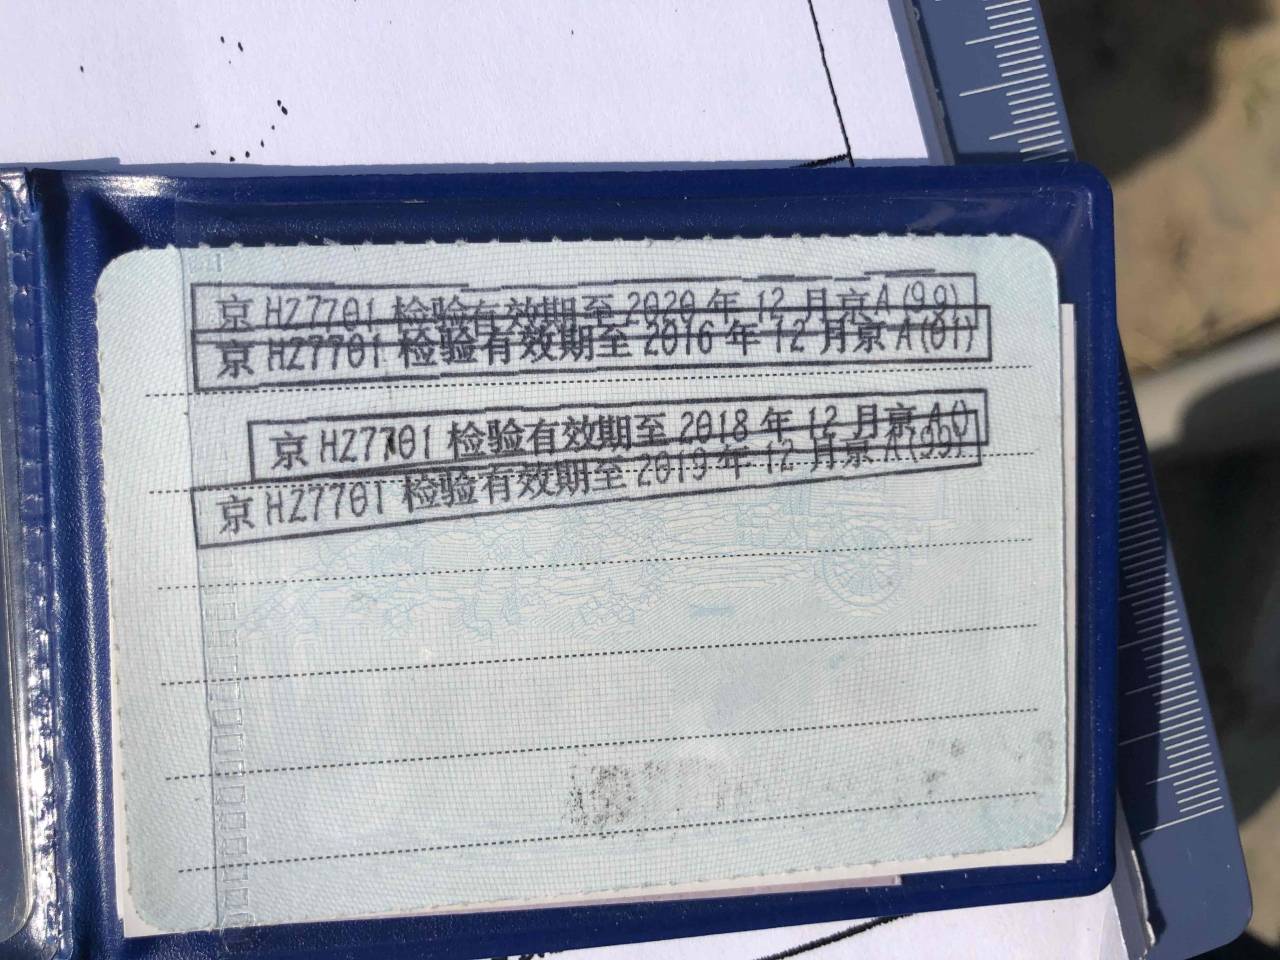 京HZ7701 检验有效期至2020年12月京A(99)
京HZ7701 检验有效期至2016年12月京A(01)
京HZ7701 检验有效期至2018年12月京A()
京HZ7701 检验有效期至2019年12月京A(99)